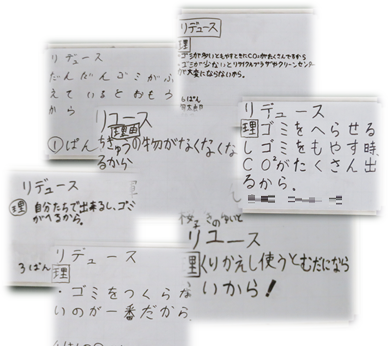 リデュース
理
・ゴミが多いともやすときにCO²がたくさんでるから
・ゴミが少ないとリサイクルプラザやクリーンセンター
が大変にならないから。
リデュース
だんだんゴミがふ
えているとおもう
から
リユース
理由
①ぱん ちきゅうの物がなくなくな
るから
リデュース
理 ゴミをへらせる
しゴミをもやす時
CO²がたくさん出
るから。
リデュース
理 自分たちで出来るし、ゴミ
がへるから。
3ぱん
リユース
理 くりかえし使うとむだになら
ないから！
リデュース
理
・ゴミをつくらな
いのが一番だから